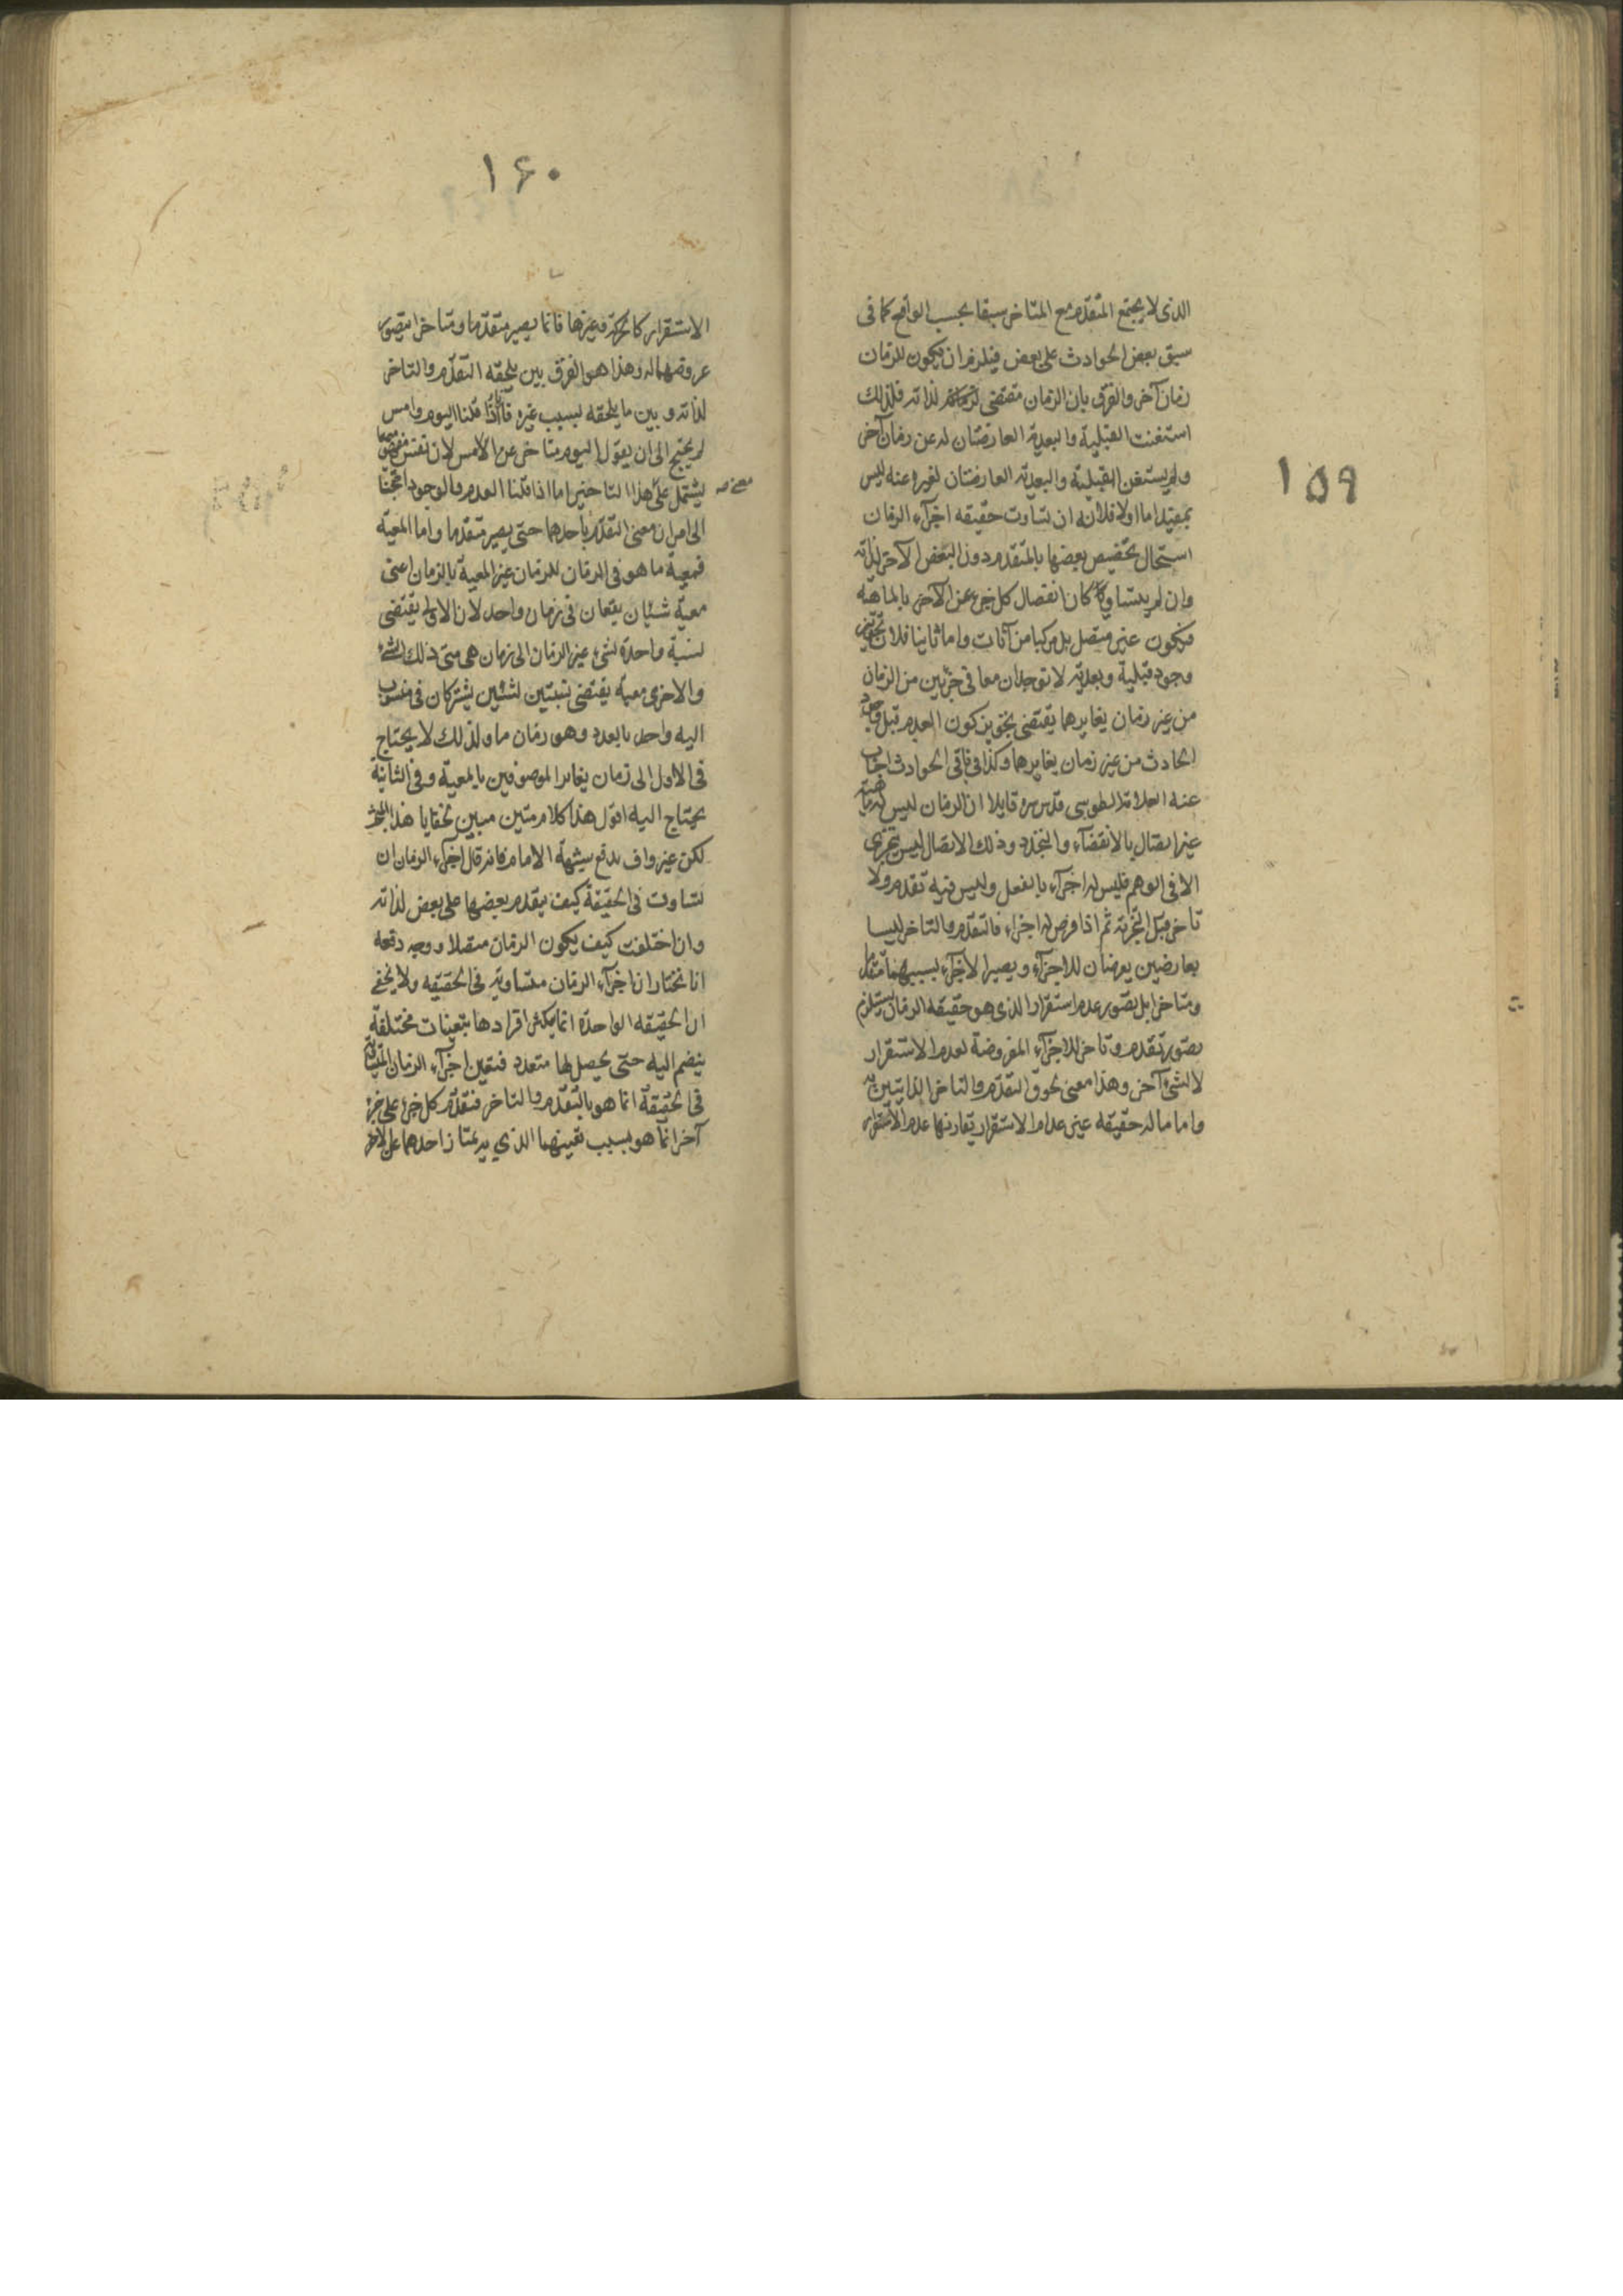 ١٥٩
الذى لا يجتمع المتقدم مع المتاخر سبقا بحسب الواقع كما فى
سبق بعض الحوادث على بعض فيلزم ان يكون للزمان
زمان آخر والفرق بان الزمان مقتضى لذاته فلذلك
استغنت القبلية والبعدية العارضتان له عن زمان آخر
ولم يستغن القبلية والبعدية العارضتان لغيره عنه ليس
بمفيد اما اولا فلانه ان تساوت حقيقه اجزآء الزمان
استحال تخصيص بعضها بالمتقدم دون البعض الآخر لذاته
وان لم يتساو كان انفصال كل جزء عن الآخر بالماهية
فيكون غير متصل بل مركبا من آنات واما ثانيا فلان تجويز
وجود قبلية وبعدية لا توجدان معا فى جزئين من الزمان
من غير زمان يغايرهما يقتضى تجويز كون العدم قبل وجود
الحادث من غير زمان يغايرهما وكذا فى باقى الحوادث اجاب
عنه العلامة الطوسى قدس سره قايلا ان الزمان ليس له ماهية
غير اتصال بالانقضآء والتجدد وذلك الاتصال ليس يتجزى
الا فى الوهم فليس له اجزآء بالفعل وليس فيه تقدم ولا
تاخر قبل التجزية ثم اذا فرض له اجزاء فالتقدم والتاخر ليسا
بعارضين يعرضان للاجزآء ويصير الاجزآء بسببهما متقدما
ومتاخرا بل تصور عدم استقرار الذى هو حقيقه الزمان يستلزم
تصور تقدم وتاخر للاجزآء المفروضة لعدم الاستقرار
لا لشئ آخر وهذا معنى لحوق التقدم والتاخر الذاتيين به
واما ما له حقيقه غير عدم الاستقرار يقارنها عدم الاستقرار
١۶٠
الاستقرار كالحركة وغيرها فانما يصير متقدما ومتاخرا بتصور
عروضهما له وهذا هو الفرق بين ما يلحقه التقدم والتاخر
لذاته وبين ما يلحقه بسبب غيره فانا اذا قلنا اليوم وامس
لم يحتج الى ان يقول اليوم متاخر عن الامس لان نفس مفهومهما
يشتمل على معنى هذا التاخر اما اذا قلنا العدم والوجود احتجنا
الى اقتران معنى التقدم باحدهما حتى يصير متقدما واما المعية
فمعية ما هو فى الزمان للزمان غير المعية بالزمان اعنى
معية شيئان يقعان فى زمان واحد لان الاولى يقتضى
نسبة واحدة لشئ غير الزمان الى زمان هى متى ذلك الشئ
والاخرى معية يقتضى نسبتين لشيئين يشتركان فى منسوب
اليه واحد بالعدد وهو زمان ما ولذلك لا يحتاج
فى الاول الى زمان يغاير الموصوفين بالمعية وفى الثانية
يحتاج اليه اقول هذا كلام متين مبين لخفايا هذا المبحث
لكن غير واف بدفع شبهة الامام فانه قال اجزآء الزمان ان
تساوت فى الحقيقة كيف يتقدم بعضها على بعض لذاته
وان اختلفت كيف يكون الزمان متصلا ووجه دفعه
انا نختار ان اجزآء الزمان متساوية فى الحقيقه ولا يخفى
ان الحقيقه الواحدة انما يكثر افرادها بتعينات مختلفة
ينضم اليه حتى يحصل لها متعدد فتعين اجزآء الزمان المتساوية
فى الحقيقة انما هو بالتقدم والتاخر فتقدم كل جزء على جزء
آخر انما هو بسبب تعينهما الذي به يمتاز احدهما عن الاخر